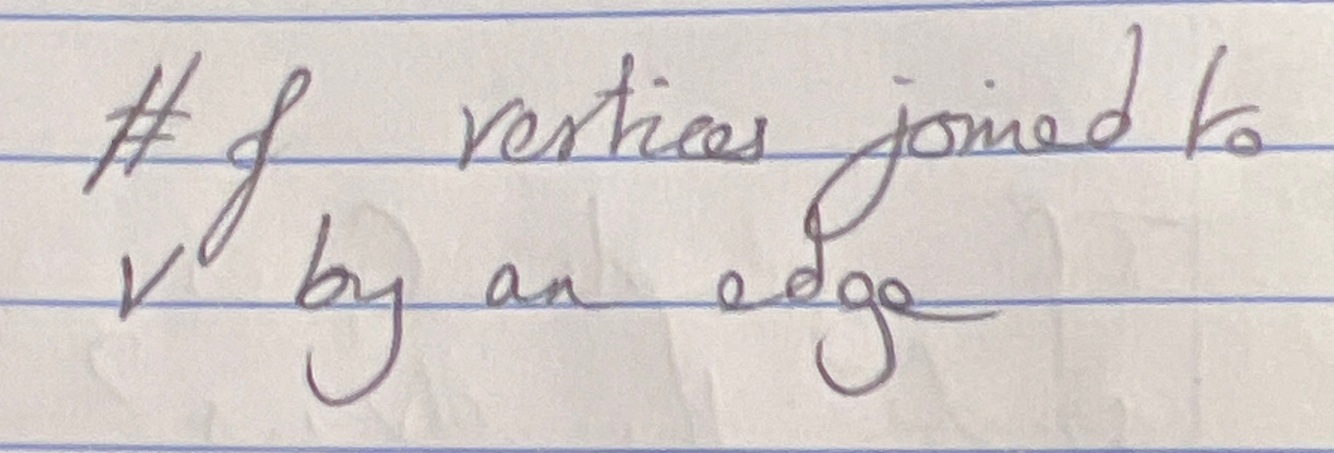 # of vertices joined to
v by an edge